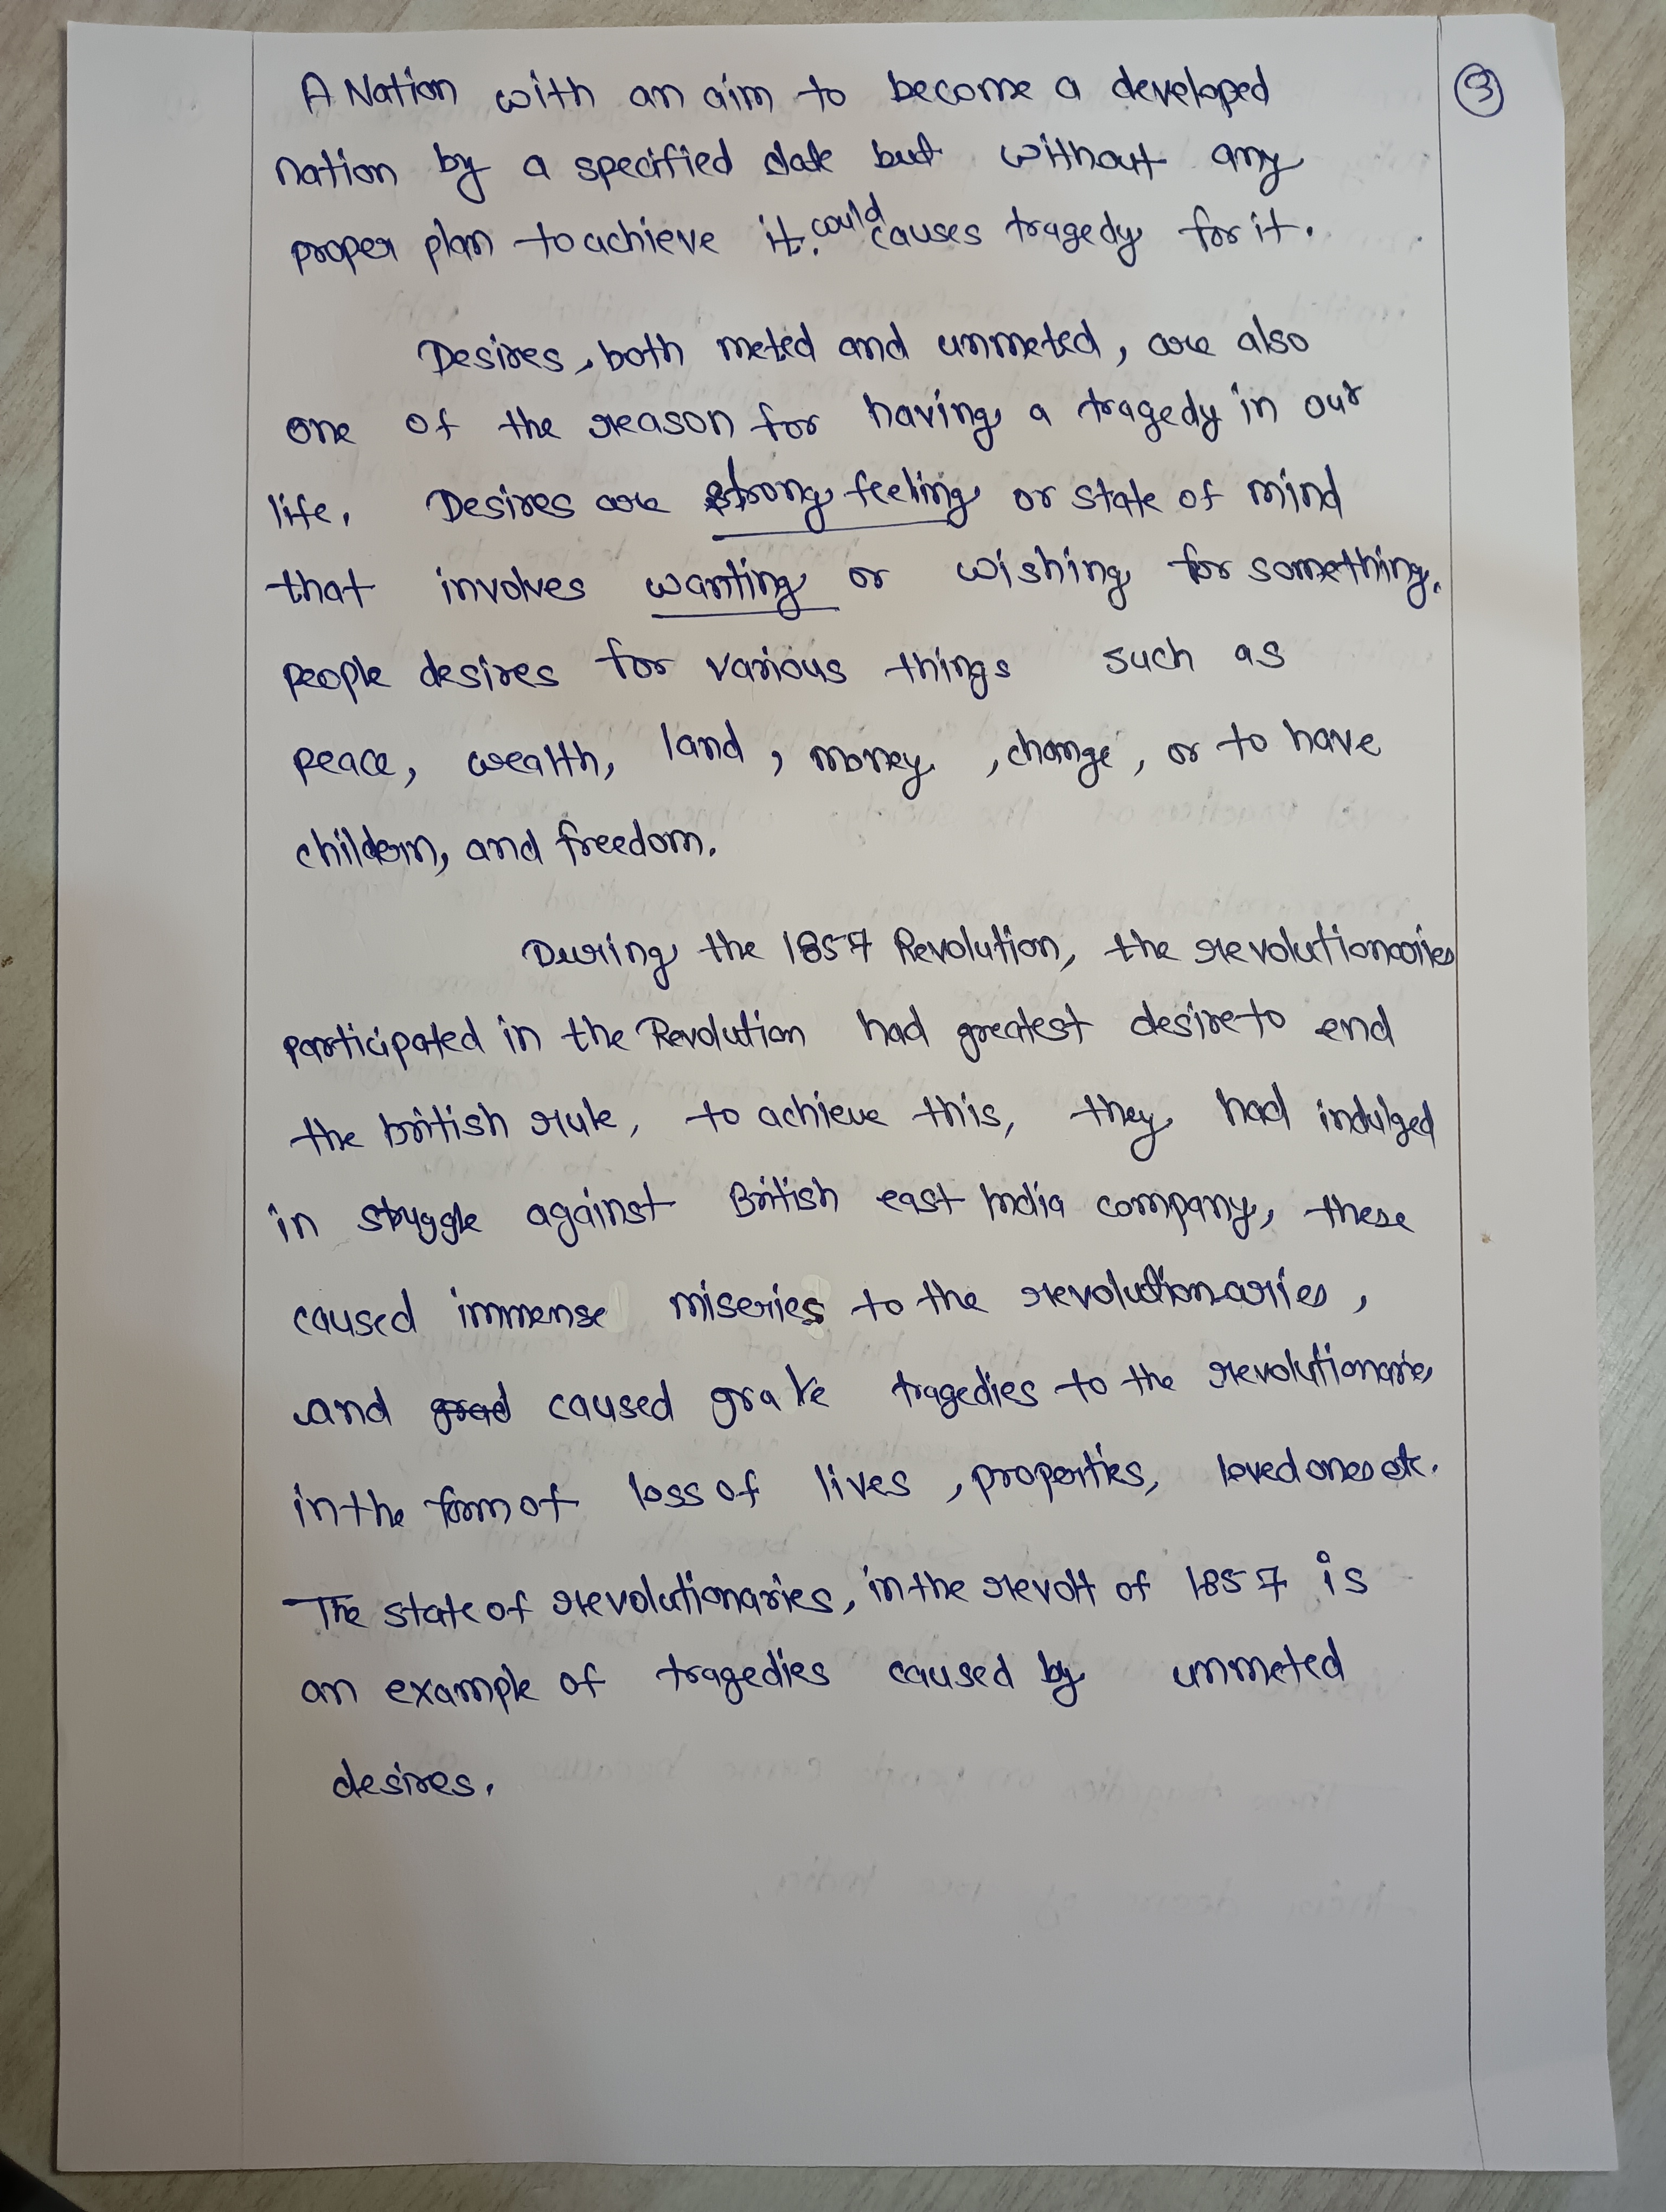 3
A Nation with an aim to become a developed
nation by a specified date but without any
proper plan to achieve it. could causes tragedy for it.
Desires, both meted and unmeted, are also
one of the reason for having a tragedy in our
life. Desires are strong feeling or state of mind
that involves wanting or wishing for something.
people desires for various things such as
peace, wealth, land, money, change, or to have
childern, and freedom.
During the 1857 Revolution, the revolutionaries
participated in the Revolution had greatest desire to end
the british rule, to achieve this, they had indulged
in struggle against British east India company, these
caused immense miseries to the revolutionaries,
and caused grave tragedies to the revolutionaries
in the form of loss of lives, properties, loved ones etc.
The state of revolutionaries, in the revolt of 1857 is
an example of tragedies caused by unmeted
desires.